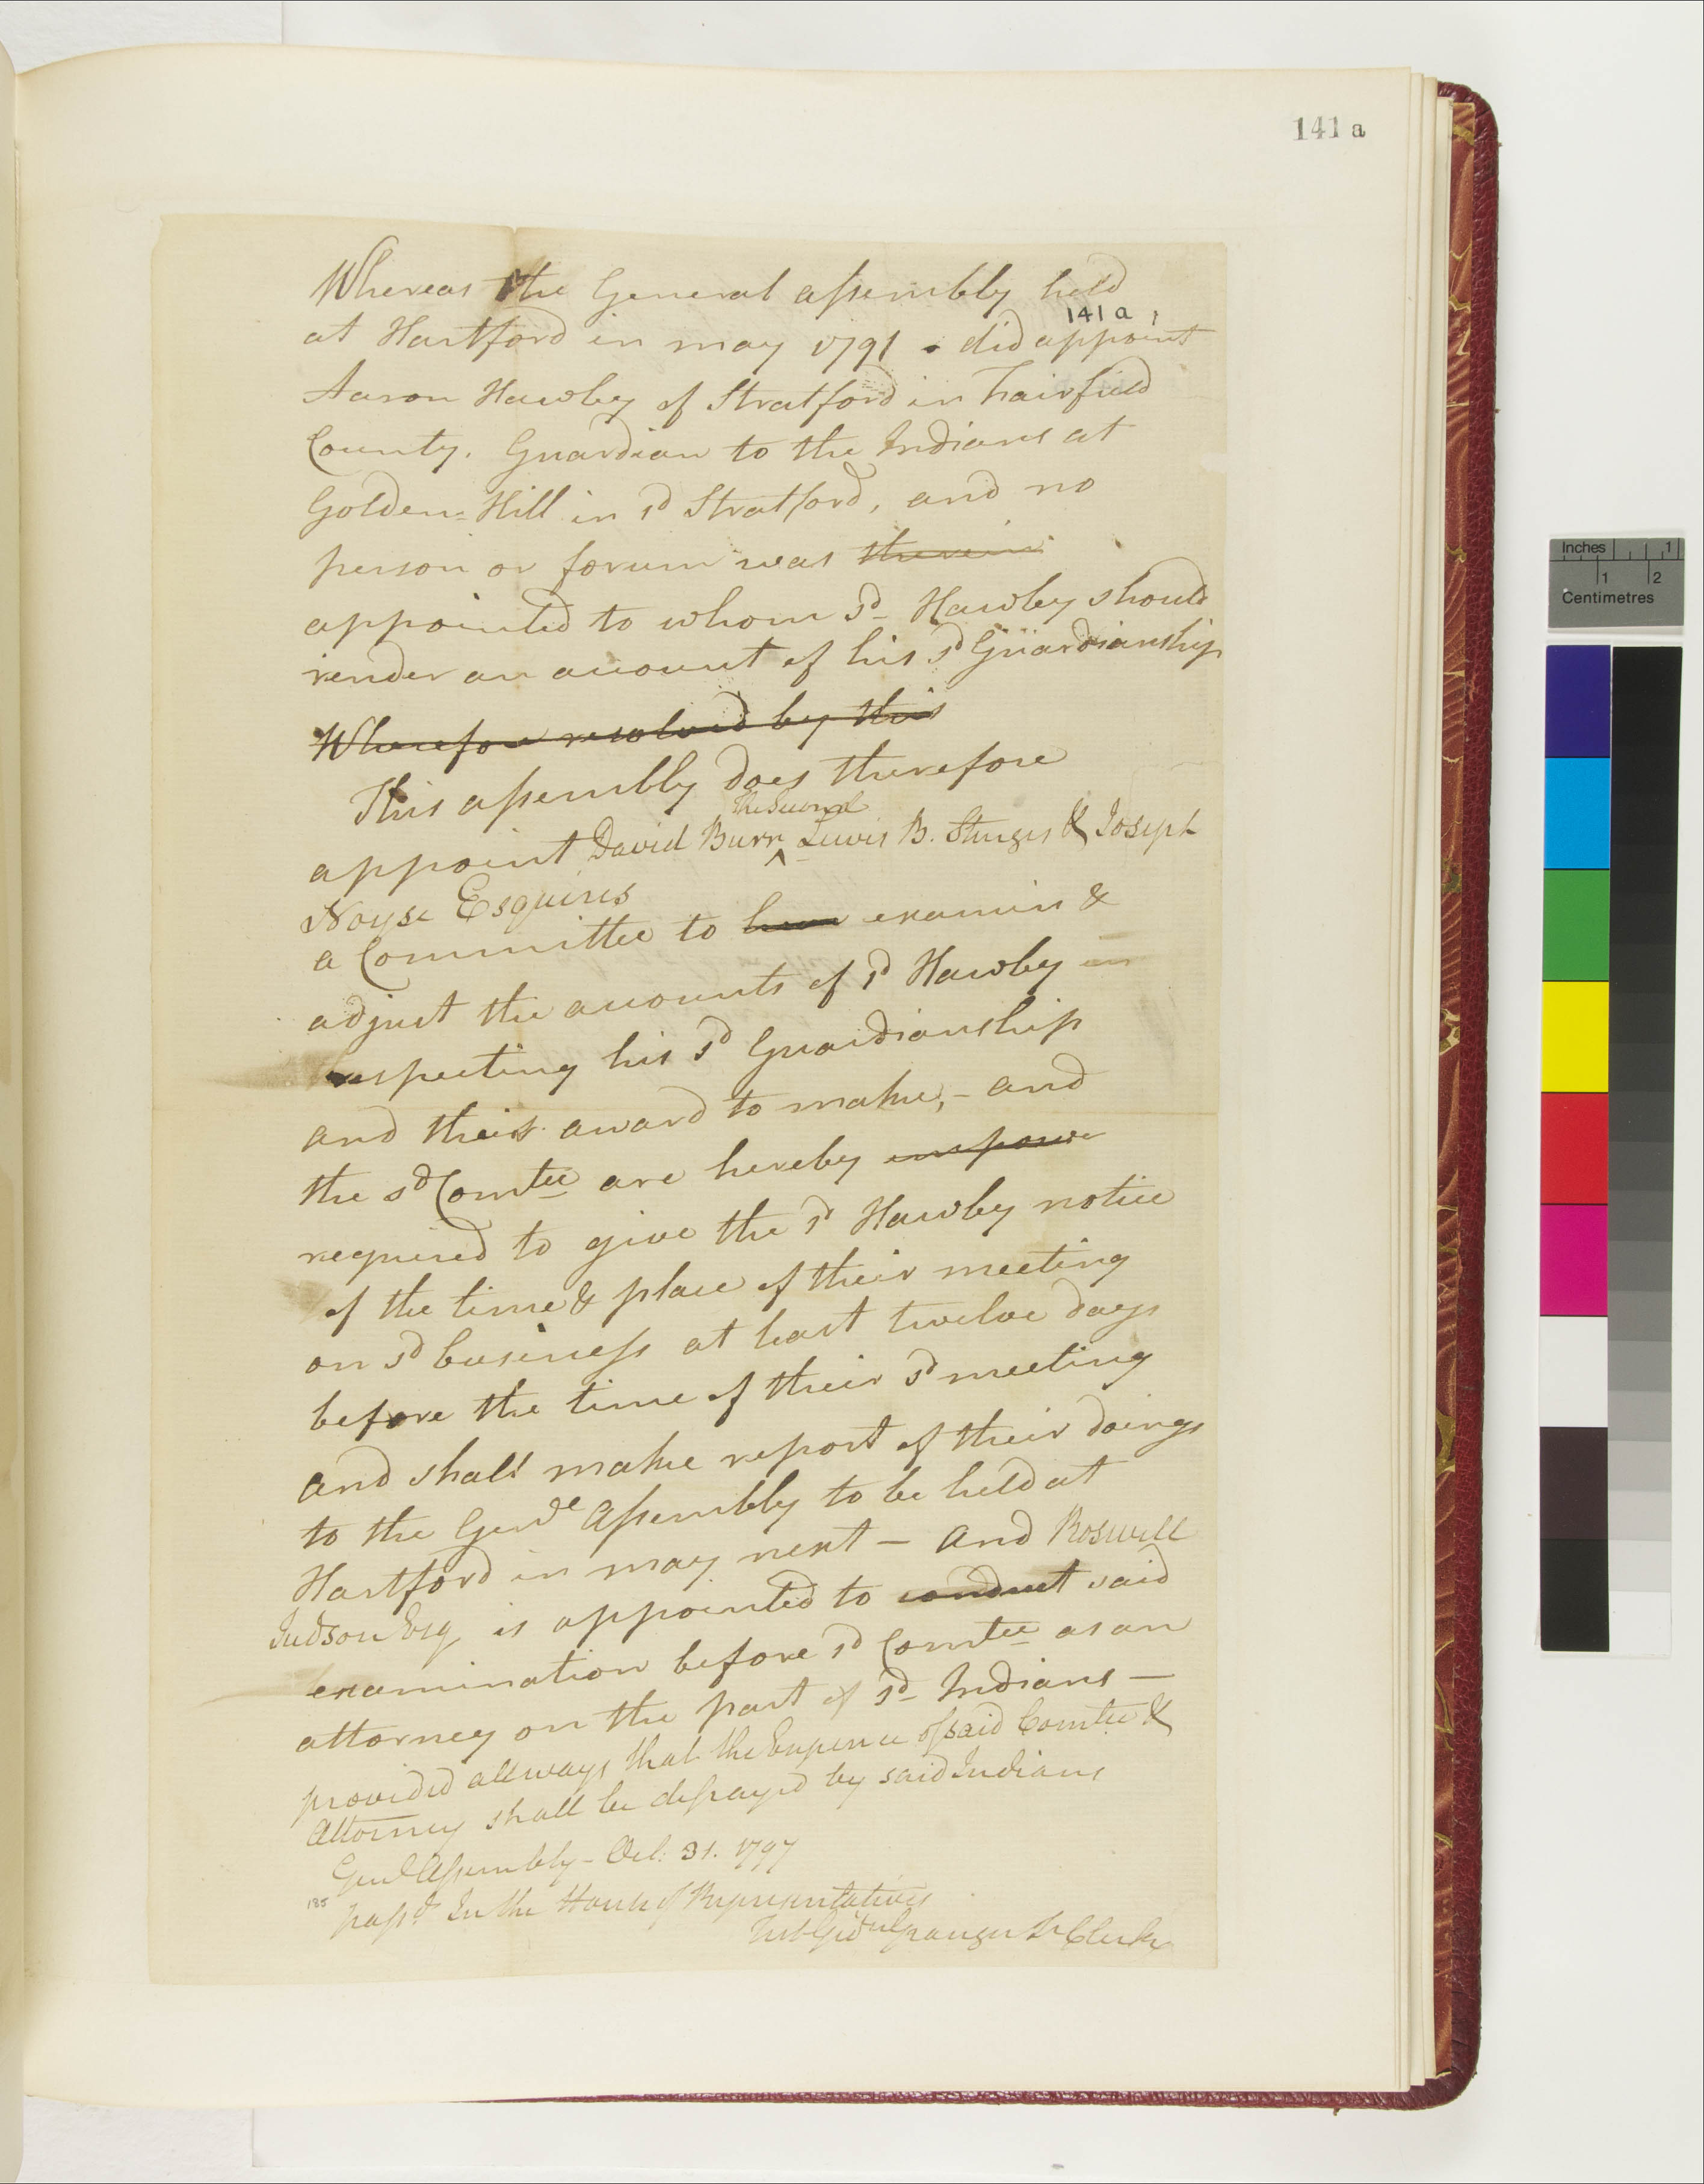 141 a
Whereas the General assembly held
141 a
at Hartford in may 1791 did appoint
Aaron Hawley of Stratford in Fairfield
County. Guardian to the Indians at
Golden Hill in sd Stratford, and no
person or forum was therein
appointed to whom sd Hawley should
render an account of his sd Guardianship
Wherefore resolved by this
This assembly does therefore
the Second
appoint David Burr ^ Lewis B. Sturges & Joseph
Noyse Esquires
a Committee to examin &
adjust the accounts of sd Hawley in
respecting his sd Guardianship
and their award to make, - and
the sd Comtee are hereby impowe
required to give the sd Hawley notice
of the time & place of their meeting
on sd business at least twelve days
before the time of their sd meeting
and shall make report of their doings
to the Genl Assembly to be held at
Hartford in may next — and Roswell
Judson Esq is appointed to conduct said
examination before sd Comtee as an
attorney on the part of sd Indians —
provided allways that the Expence of said Comtee &
Attorney shall be defrayed by said Indians
Genl Assembly - Oct. 31. 1797
185
passd In the House of Representatives
Test Gidn Granger Jr Clerk
Inches 1
1 2
Centimetres